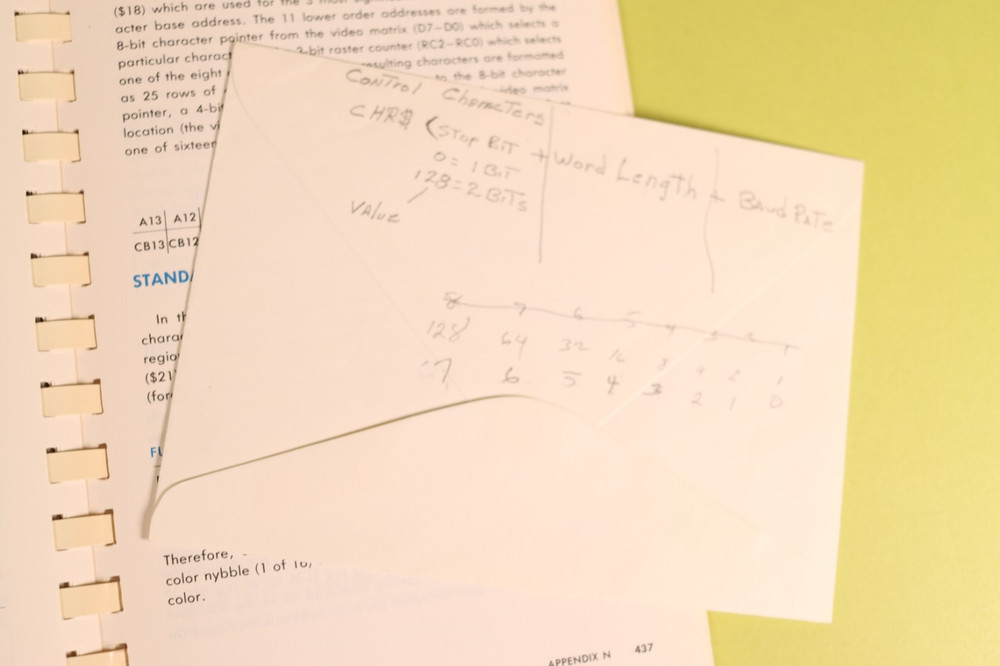 ($18) which are used for the 3
acter base address. The 11 lower order addresses are formed by the
8-bit character pointer from the video matrix (D7–D0) which selects a
particular charac 3-bit raster counter (RC2–RC0) which selects
one of the eight resulting characters are formatted
as 25 rows of to the 8-bit character
pointer, a 4-bi video matrix
location (the vi
one of sixteen
A13 A12
CB13 CB12
STAND
In th
charac
regio
($21
(for
FU
Therefore,
color nybble (1 of 16)
color.
APPENDIX N 437
Control Characters
CHR$ (Stop Bit + Word Length + Baud Rate
0 = 1 Bit
128 = 2 Bits
Value
8 7 6 5 4 3 2 1
128 64 32 16 8 4 2 1
7 6 5 4 3 2 1 0